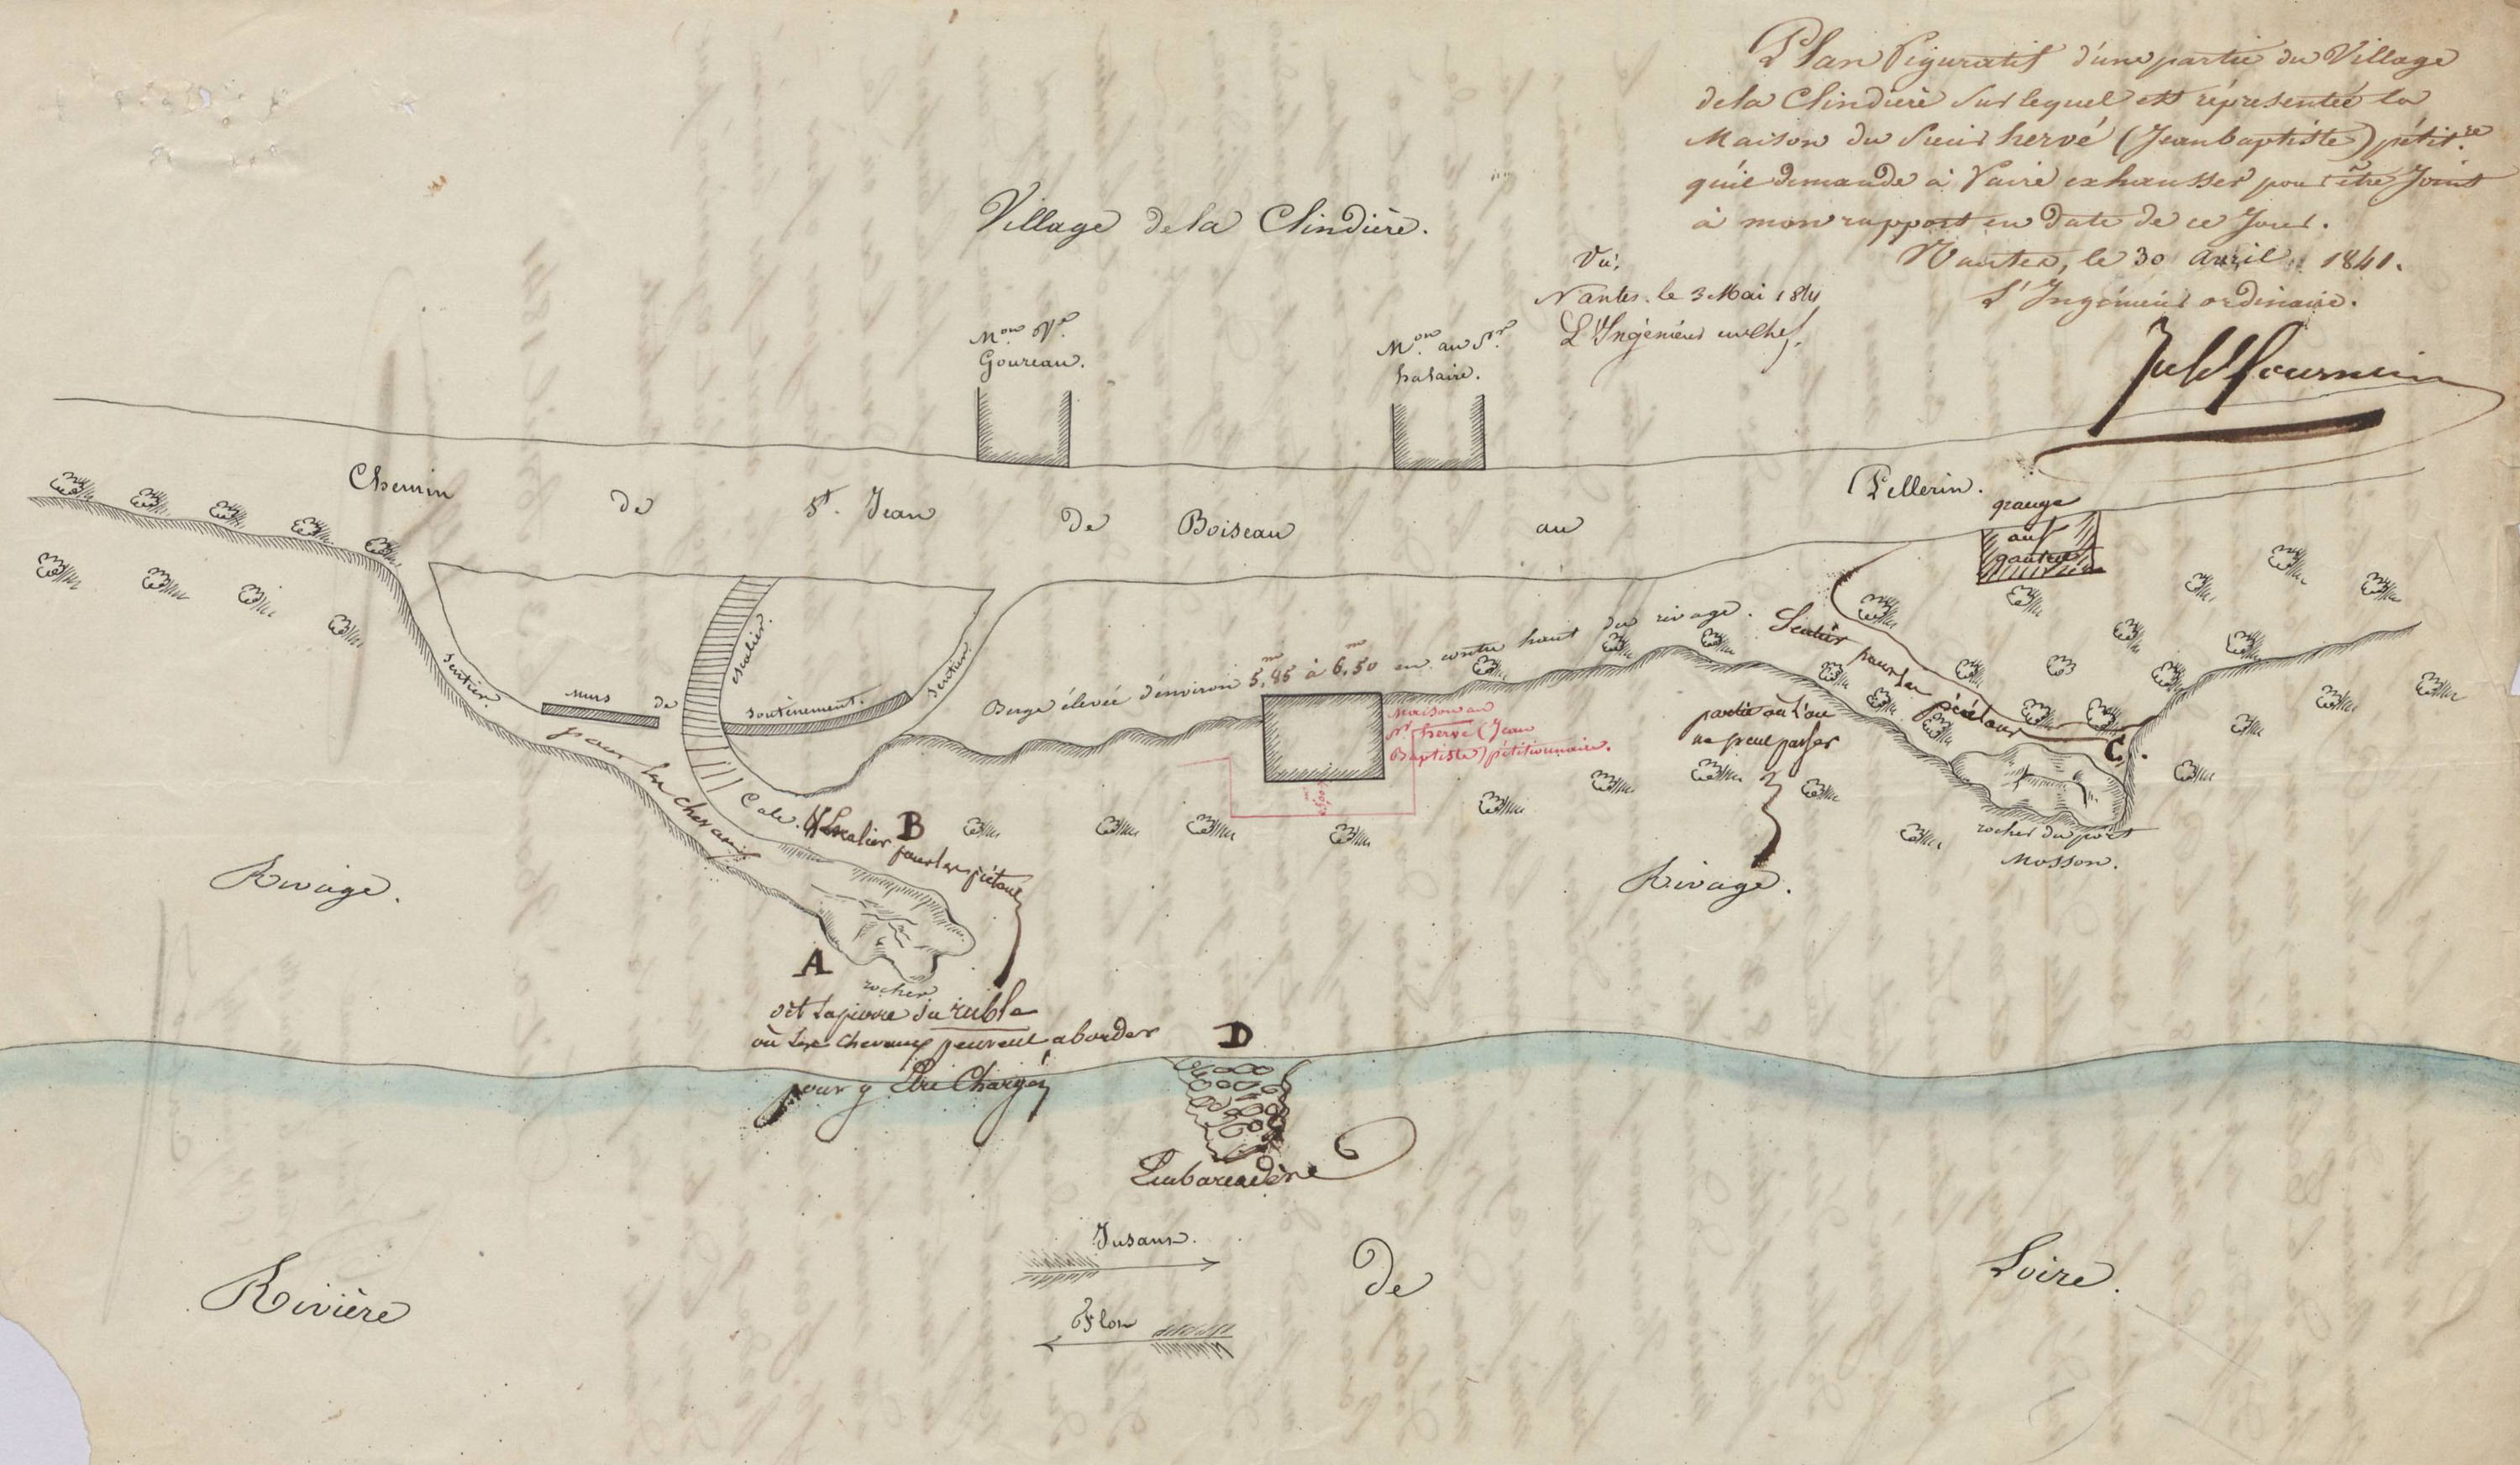 Plan figuratif d'une partie du Village
de la Clindière sur lequel est réprésentée la
Maison du Sieur hervé (Jean baptiste) pétit.re
qu'il demande à faire exhausser pour être Joint
à mon rapport en date de ce Jour.
Nantes, le 30 Avril 1841.
L'Ingénieur ordinaire.
Vu,
Nantes, le 3 Mai 1841
L'Ingénieur en chef,
Village de la Clindière.
M.on V.e
Goureau.
M.on au S.r
halaire.
Chemin de St. Jean de Boiseau au Pellerin.
grange
aux
escalier.
sentier.
sentier.
murs de soutènement.
Berge élevée d'environ 5,m85 à 6,m50 en contre haut du rivage.
Maison au
Sr hervé (Jean
Baptiste) pétitionnaire.
Sentier pour les piétons
partie où l'on
ne peut passer
C.
rocher du port
Mosson.
pour les chevaux
Cale.
Escalier B
pour les piétons
Rivage.
Rivage.
A
rocher
dit la pierre du rible
où les chevaux peuvent aborder
pour y Etre Chargés
D
Embarcadère
Jusant.
Flot
Rivière de Loire.